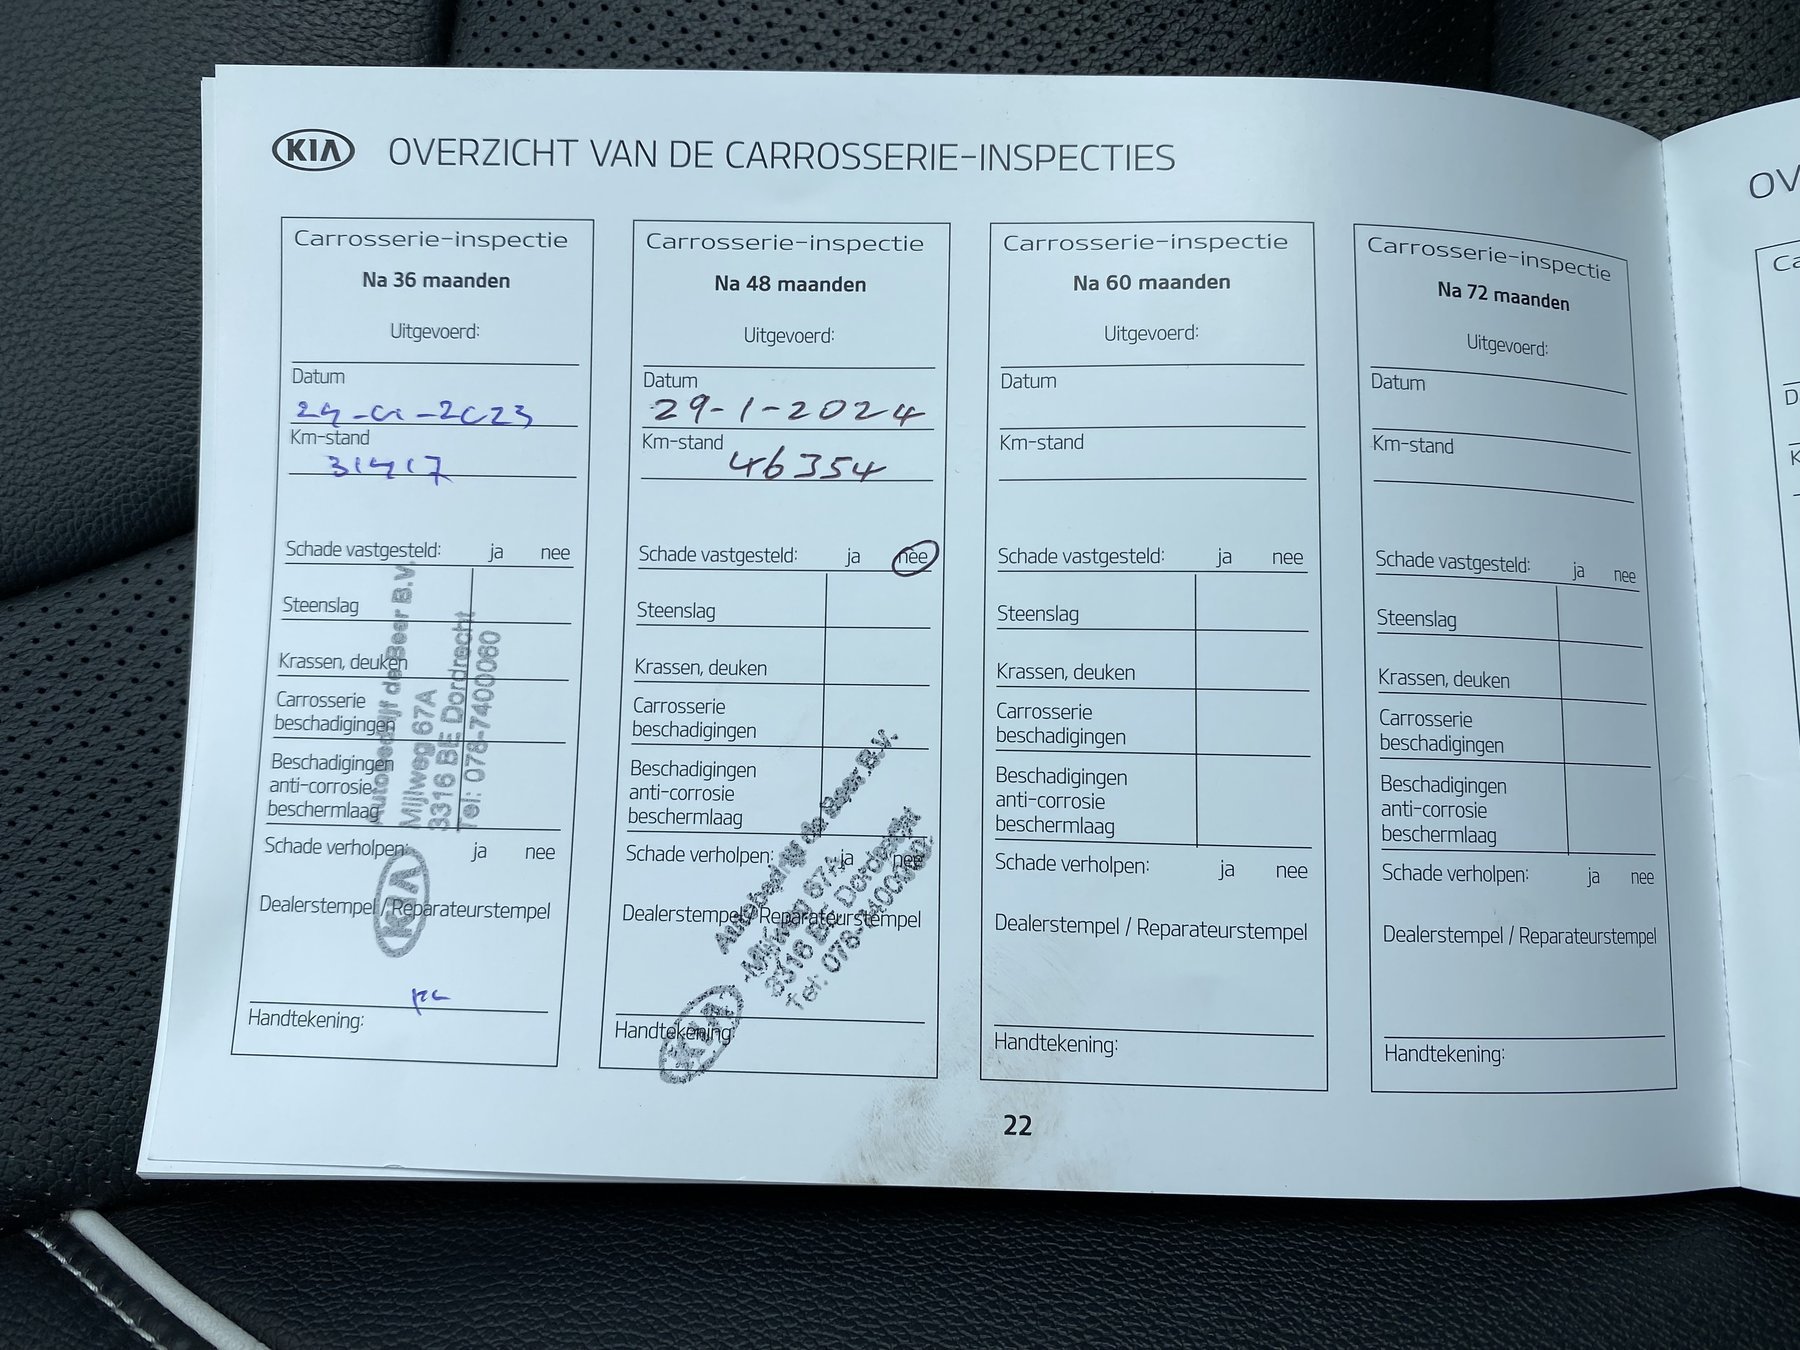 KIA OVERZICHT VAN DE CARROSSERIE-INSPECTIES
Carrosserie-inspectie
Na 36 maanden
Uitgevoerd:
Datum
Km-stand
Schade vastgesteld: ja nee
Steenslag
Krassen, deuken
Carrosserie
beschadigingen
Beschadigingen
anti-corrosie
beschermlaag
Schade verholpen: ja nee
Dealerstempel / Reparateurstempel
Handtekening:
Autobedrijf de Beer B.V.
Mijlweg 67A
3316 BE Dordrecht
Tel: 078-7400060
KIA
Carrosserie-inspectie
Na 48 maanden
Uitgevoerd:
Datum
29-1-2024
Km-stand
46354
Schade vastgesteld: ja nee
Steenslag
Krassen, deuken
Carrosserie
beschadigingen
Beschadigingen
anti-corrosie
beschermlaag
Schade verholpen: ja nee
Dealerstempel / Reparateurstempel
Handtekening:
Autobedrijf de Beer B.V.
Mijlweg 67A
3316 BE Dordrecht
Tel: 078-7400060
KIA
Carrosserie-inspectie
Na 60 maanden
Uitgevoerd:
Datum
Km-stand
Schade vastgesteld: ja nee
Steenslag
Krassen, deuken
Carrosserie
beschadigingen
Beschadigingen
anti-corrosie
beschermlaag
Schade verholpen: ja nee
Dealerstempel / Reparateurstempel
Handtekening:
Carrosserie-inspectie
Na 72 maanden
Uitgevoerd:
Datum
Km-stand
Schade vastgesteld: ja nee
Steenslag
Krassen, deuken
Carrosserie
beschadigingen
Beschadigingen
anti-corrosie
beschermlaag
Schade verholpen: ja nee
Dealerstempel / Reparateurstempel
Handtekening:
22
OV
Ca
D
K